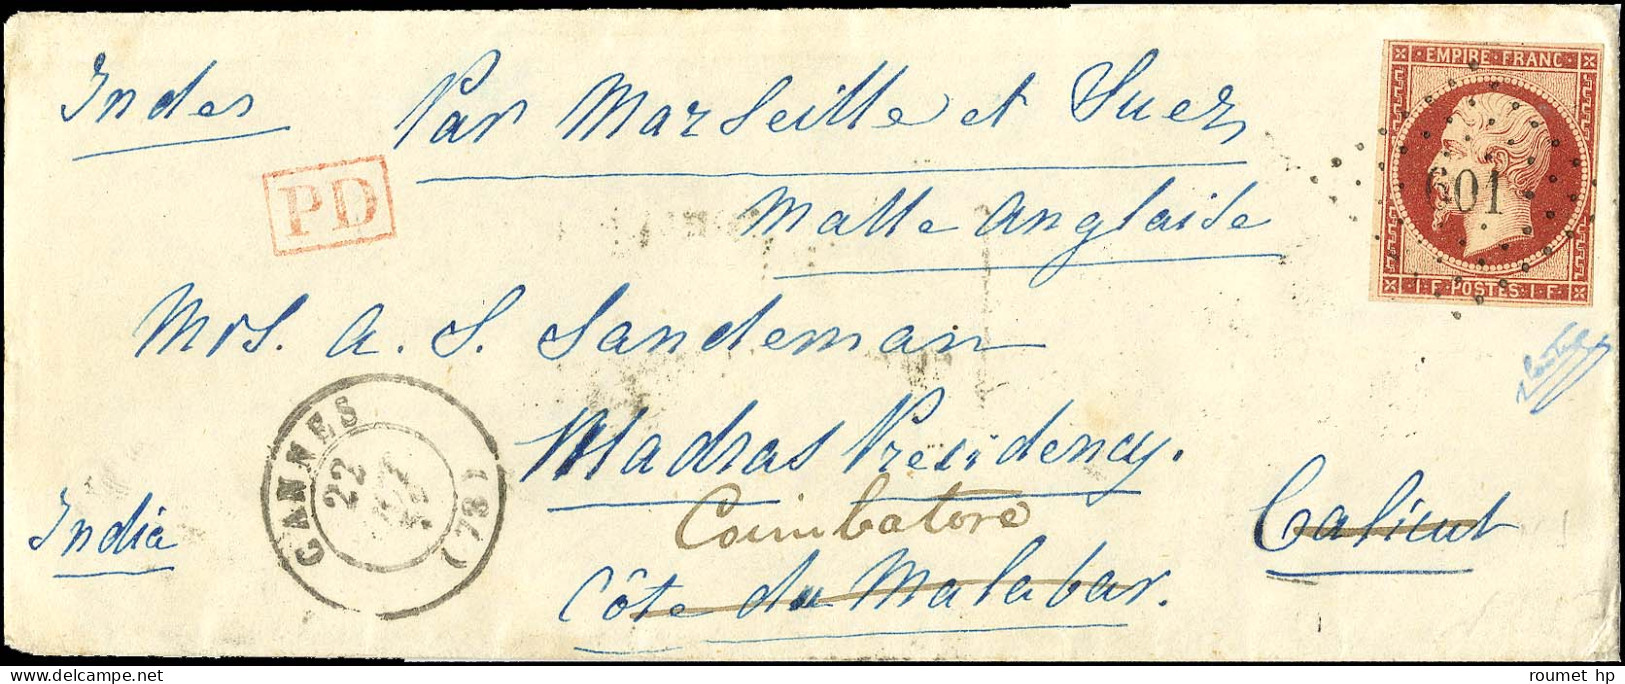 Indes
Par Marseille et Suez
Malle Anglaise
PD
EMPIRE · FRANC ·
601
1 · F · POSTES · 1 · F ·
Mrs. A. S. Sandeman
Madras Presidency.
Coimbatore
Calicut
Côte du Malabar.
India
CANNES
22
(78)
roumet hp